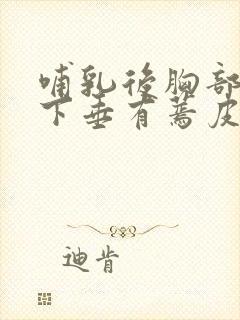 哺乳後胸部
下垂有蔫皮
迪肯